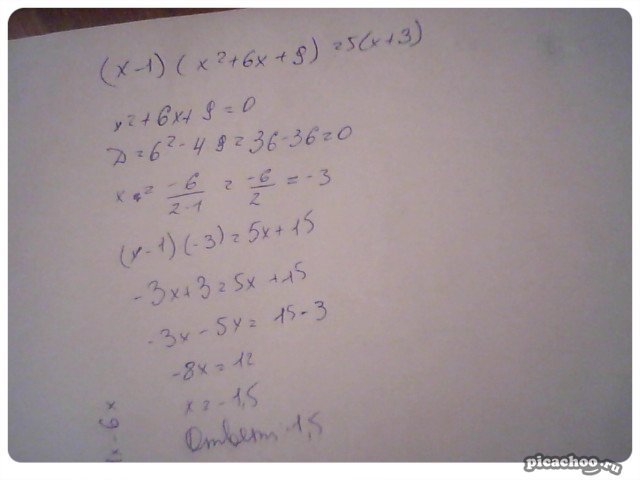 (x-1) (x²+6x+9) =5(x+3)
x²+6x+9=0
D=6²-4 9=36-36=0
x = -6/2·1 = -6/2 = -3
(x-1)(-3)=5x+15
-3x+3=5x+15
-3x-5x=15-3
-8x=12
x=-1,5
Ответ: -1,5
-6x
picachoo.ru